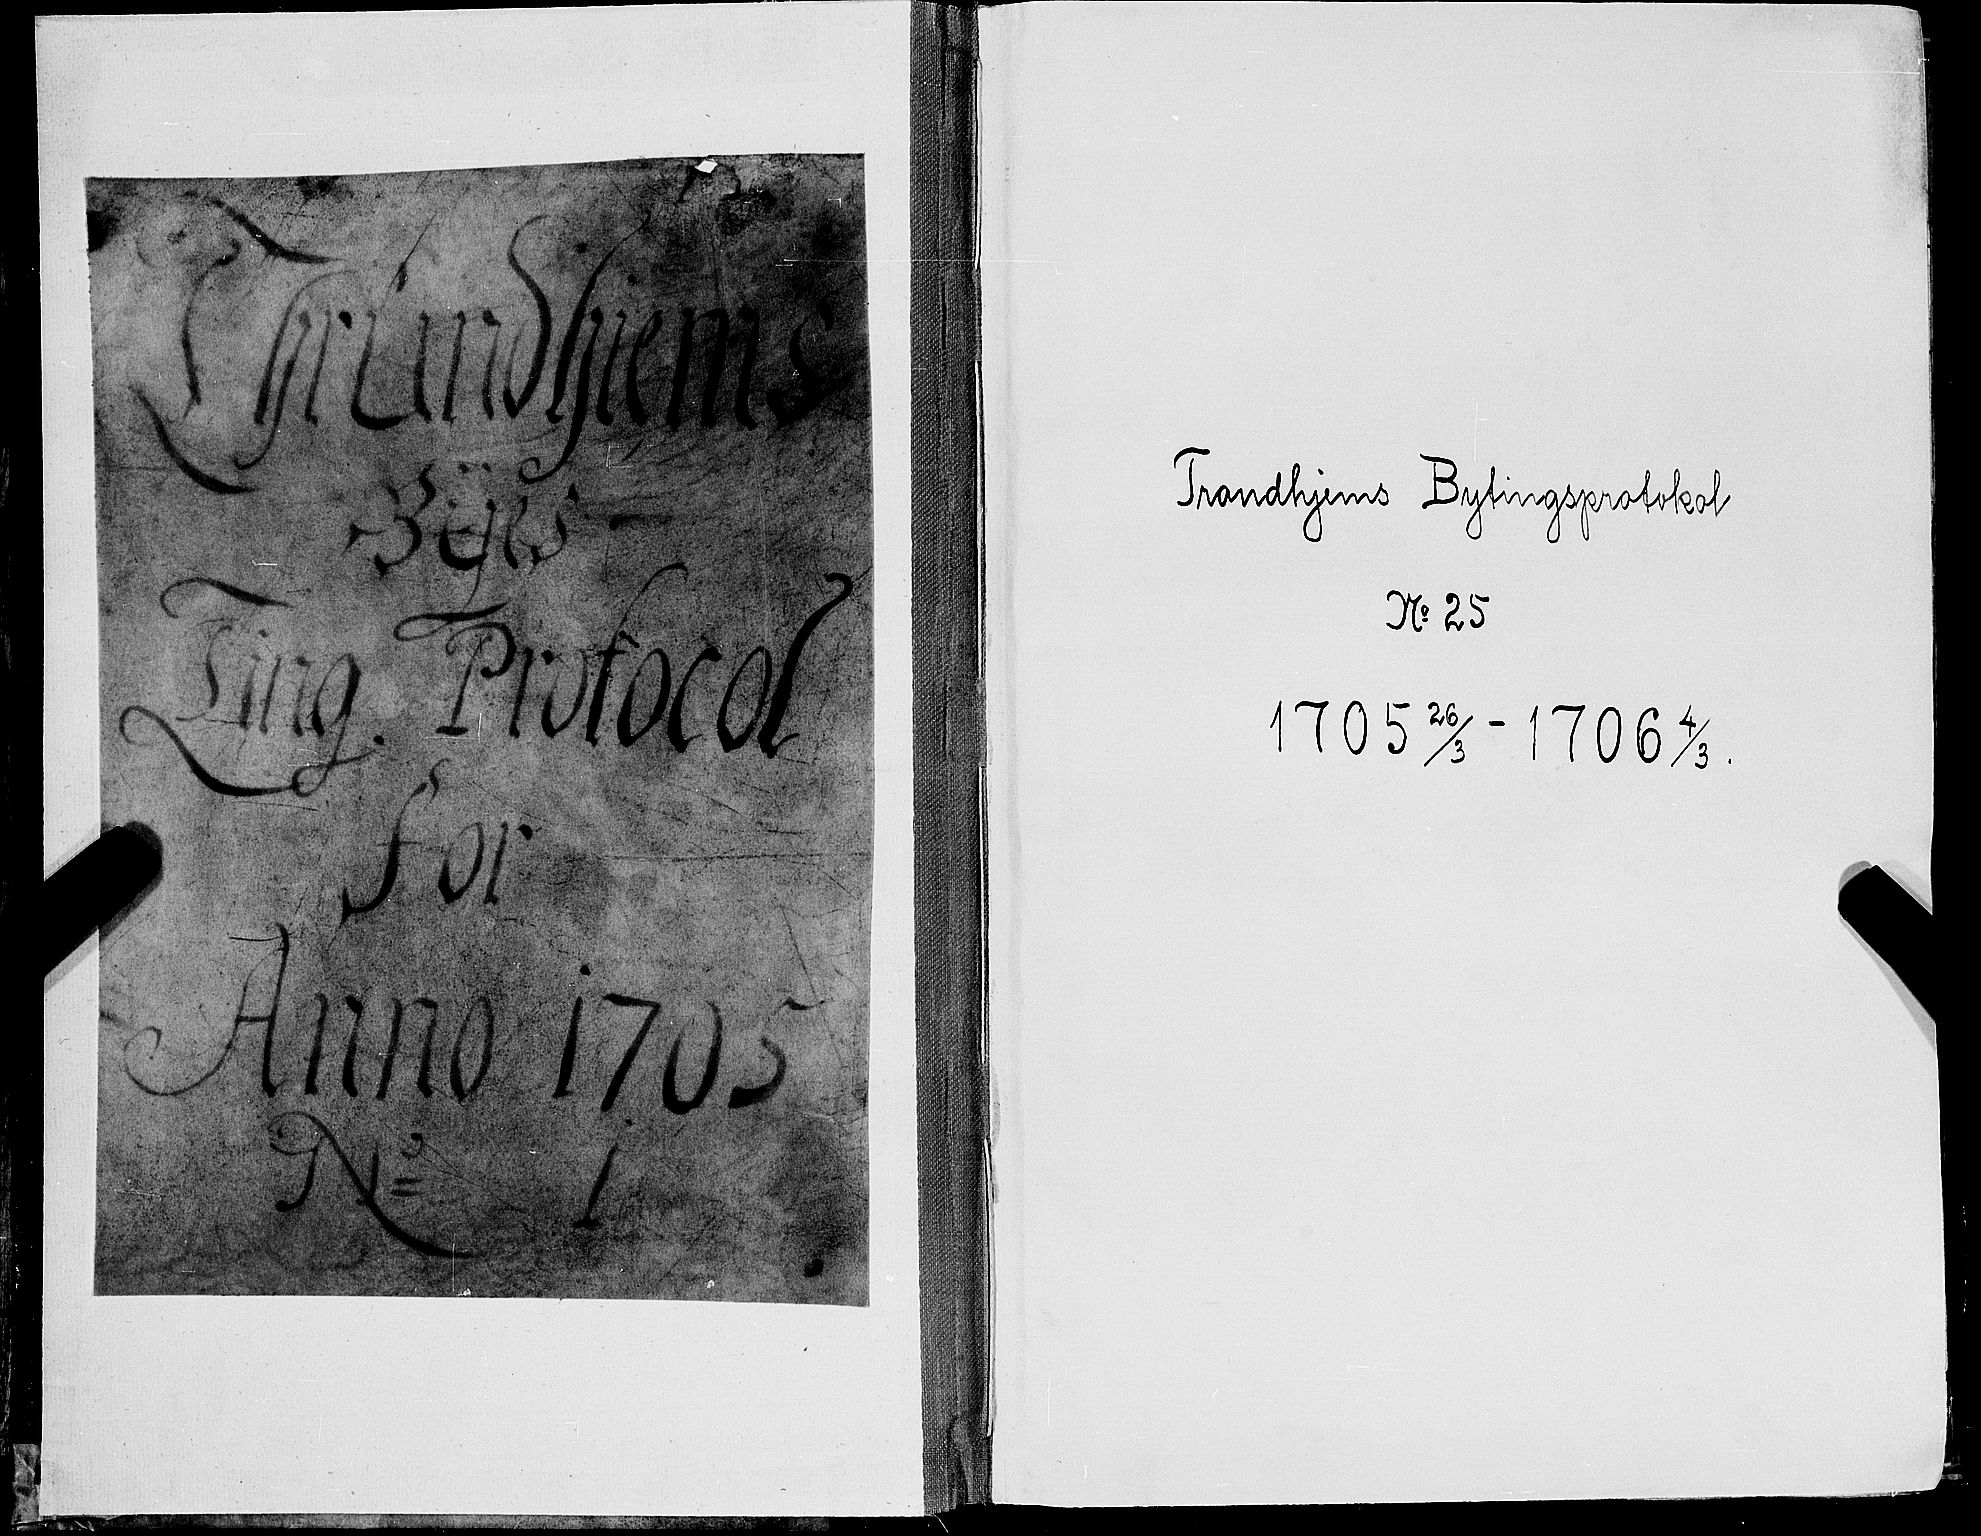 Thrundhjems
Byes
Ting. Protocol
for
Anno 1705
No 1
Trondhjems Bytingsprotokol
No 25
1705 26/3 - 1706 4/3.